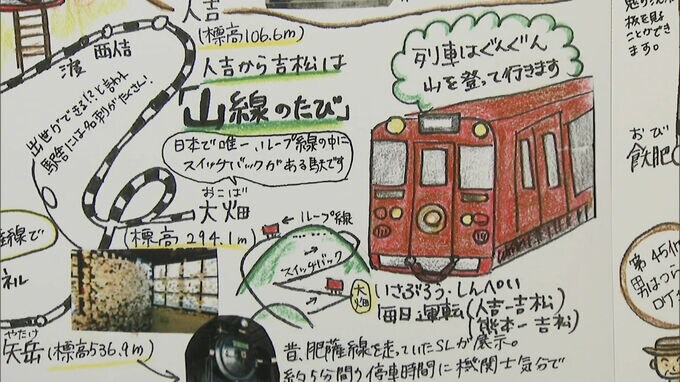 人吉
(標高106.6m)
人吉から吉松は
「山線のたび」
列車はぐんぐん
山を登って行きます
西人吉
出世ができる!?と言われ
駅舎には名刺がたくさん!
日本で唯一、ループ線の中に
スイッチバックがある駅です
おこば
大畑
(標高294.1m)
←ループ線
スイッチバック
大畑
いさぶろう・しんぺい
毎日運転(人吉ー吉松)
(熊本ー吉松)
やたけ
矢岳(標高536.9m)
昔、肥薩線を走っていたSLが展示。
約5分間の停車時間に機関士気分で
板を見
ことができ
ます。
おび
飫肥
第45
男はつら
ロケ
線で
ネル